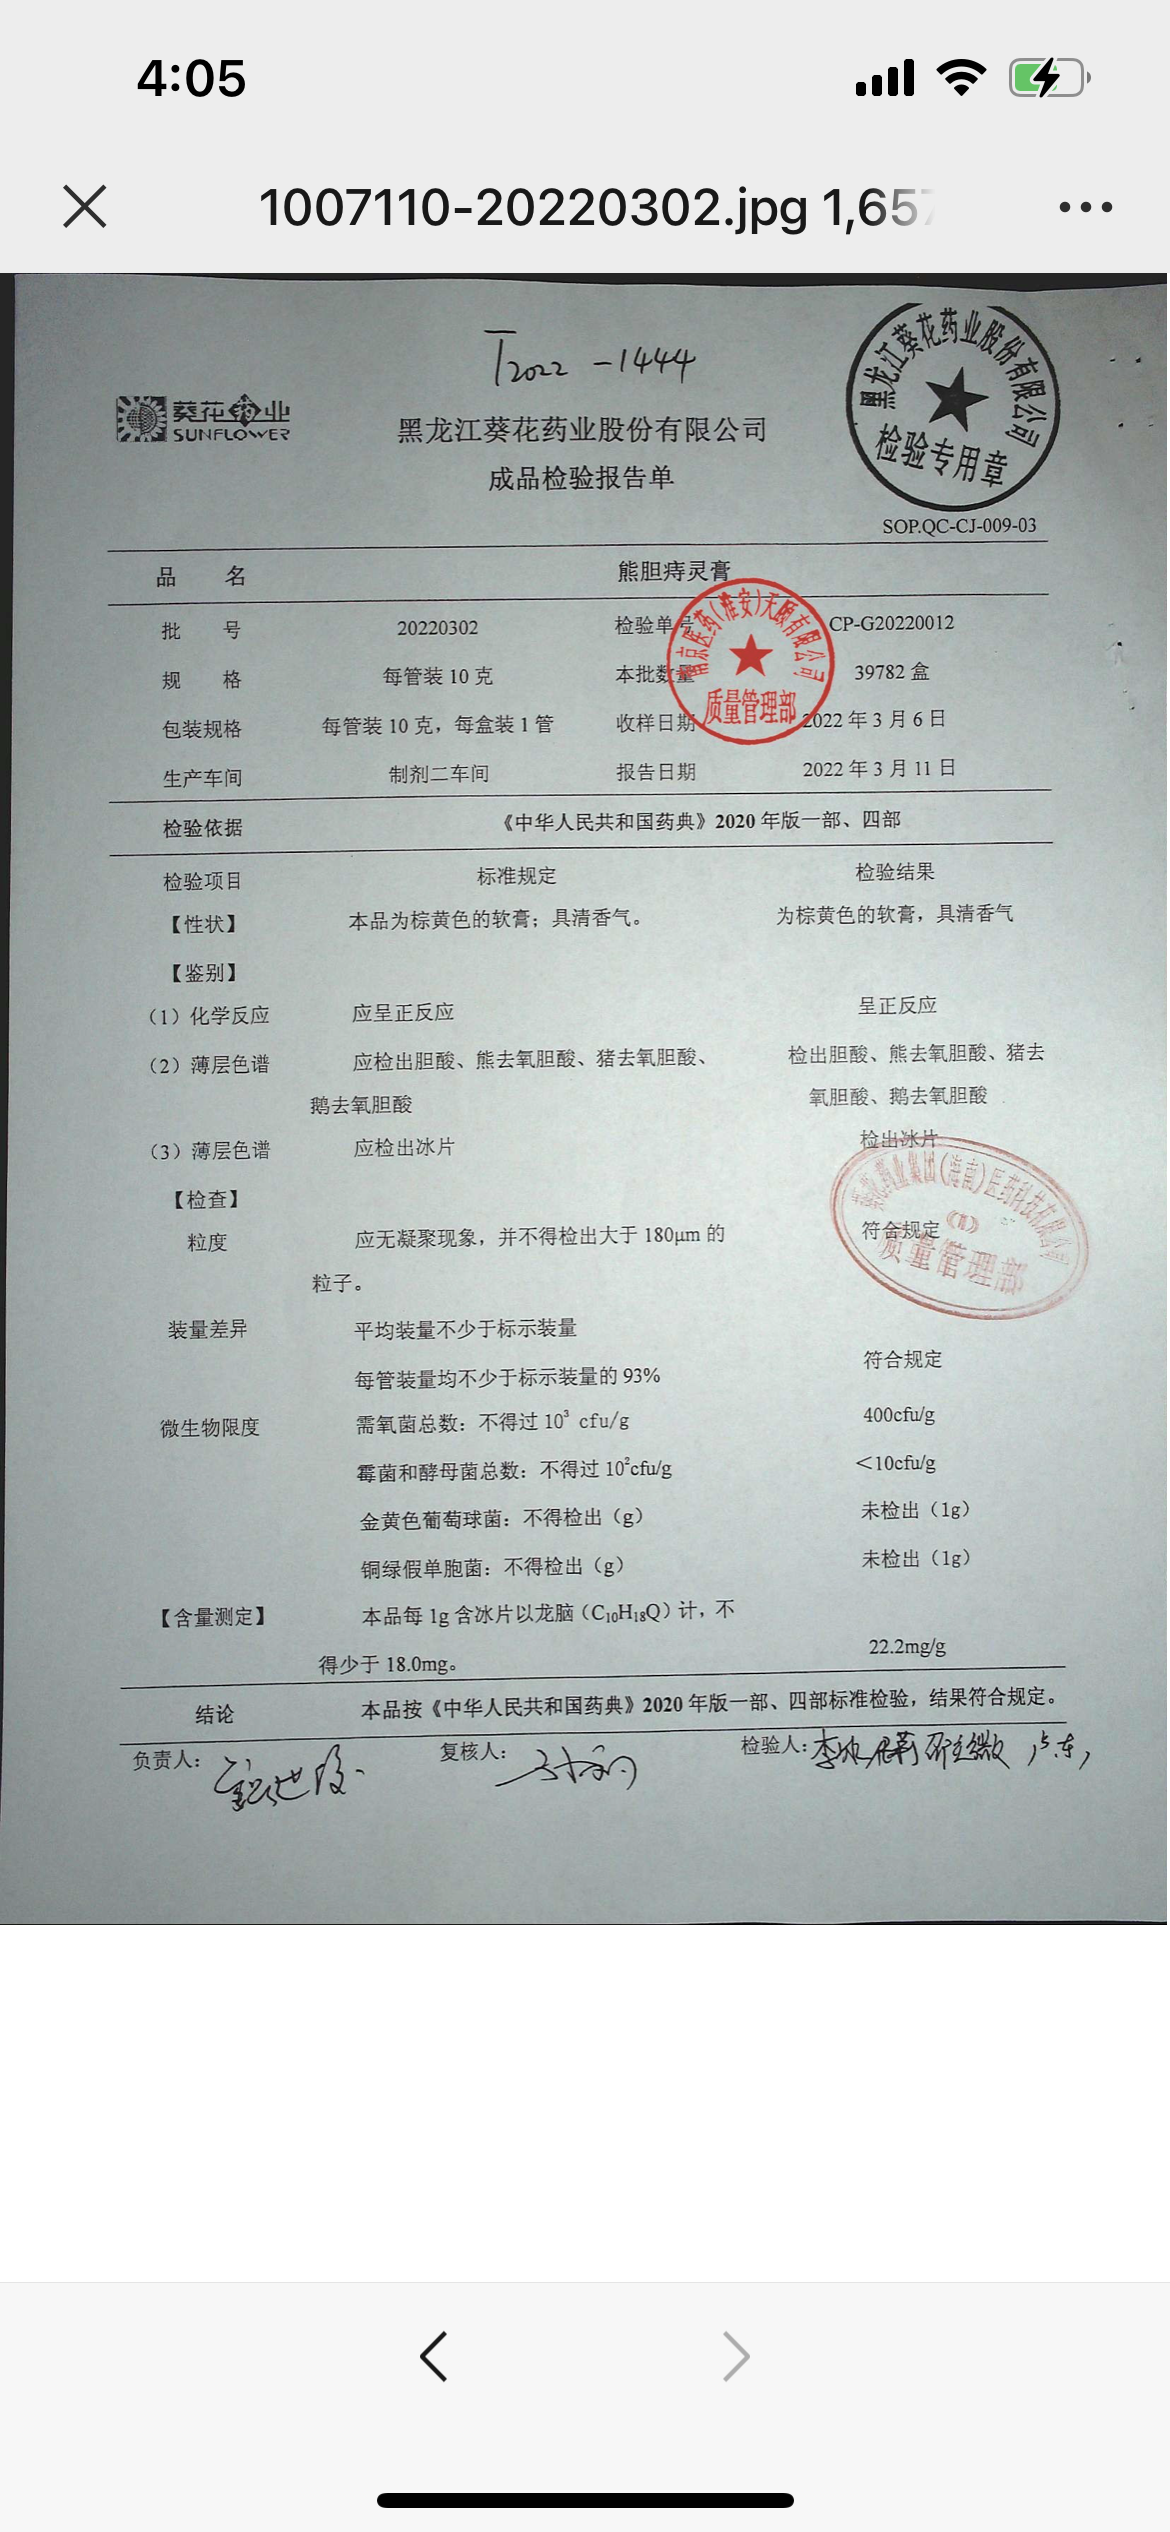 4:05
1007110-20220302.jpg 1,657
T2022-1444
葵花药业
SUNFLOWER
黑龙江葵花药业股份有限公司
成品检验报告单
黑龙江葵花药业股份有限公司
检验专用章
SOP.QC-CJ-009-03
品 名 熊胆痔灵膏
批 号 20220302 检验单号 CP-G20220012
规 格 每管装 10 克 本批数量 39782 盒
包装规格 每管装 10 克，每盒装 1 管 收样日期 2022 年 3 月 6 日
生产车间 制剂二车间 报告日期 2022 年 3 月 11 日
南京医药(淮安)天颐有限公司
质量管理部
检验依据 《中华人民共和国药典》2020 年版一部、四部
检验项目 标准规定 检验结果
【性状】 本品为棕黄色的软膏；具清香气。 为棕黄色的软膏，具清香气
【鉴别】
（1）化学反应 应呈正反应 呈正反应
（2）薄层色谱 应检出胆酸、熊去氧胆酸、猪去氧胆酸、 检出胆酸、熊去氧胆酸、猪去
鹅去氧胆酸 氧胆酸、鹅去氧胆酸
（3）薄层色谱 应检出冰片 检出冰片
【检查】
粒度 应无凝聚现象，并不得检出大于 180μm 的 符合规定
粒子。
葵花药业集团(海南)医药科技有限公司
(1)
质量管理部
装量差异 平均装量不少于标示装量
每管装量均不少于标示装量的 93% 符合规定
微生物限度 需氧菌总数：不得过 10³ cfu/g 400cfu/g
霉菌和酵母菌总数：不得过 10²cfu/g ＜10cfu/g
金黄色葡萄球菌：不得检出（g） 未检出（1g）
铜绿假单胞菌：不得检出（g） 未检出（1g）
【含量测定】 本品每 1g 含冰片以龙脑（C₁₀H₁₈Q）计，不
得少于 18.0mg。 22.2mg/g
结论 本品按《中华人民共和国药典》2020 年版一部、四部标准检验，结果符合规定。
负责人： 复核人： 检验人：